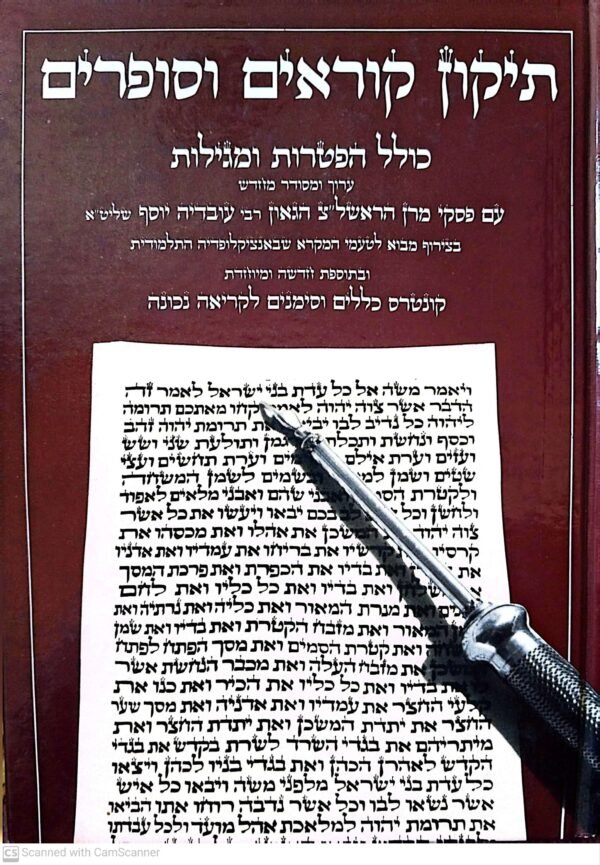 תיקון קוראים וסופרים
כולל הפטרות ומגילות
ערוך ומסודר מחדש
עם פסקי מרן הראשל״צ הגאון רבי עובדיה יוסף שליט״א
בצירוף מבוא לטעמי המקרא שבאנציקלופדיה התלמודית
ובתוספת חדשה ומיוחדת
קונטרס כללים וסימנים לקריאה נכונה
ויאמר משה אל כל עדת בני ישראל לאמר זה
הדבר אשר צוה יהוה לאמר קחו מאתכם תרומה
ליהוה כל נדיב לבו את תרומת יהוה זהב
וכסף ונחשת ותכלת ותולעת שני ושש
ועזים וערת אילם וערת תחשים ועצי
שטים ושמן ובשמים לשמן המשחה
ולקטרת ואבני שהם ואבני מלאים לאפוד
ולחשן וכל לב בכם יבאו ויעשו את כל אשר
צוה יהוה המשכן את אהלו ואת מכסהו את
קרסיו קרשיו את בריחו את עמדיו ואת אדניו
את ואת בדיו את הכפרת ואת פרכת המסך
את ואת בדיו ואת כל כליו ואת לחם
ואת מנרת המאור ואת כליה ואת נרתיה ואת
המאור ואת מזבח הקטרת ואת בדיו ואת שמן
ואת קטרת הסמים ואת מסך הפתח לפתח
המשכן את מזבח העלה ואת מכבר הנחשת אשר
לו את בדיו ואת כל כליו את הכיר ואת כנו את
קלעי החצר את עמדיו ואת אדניה ואת מסך שער
החצר את יתדת המשכן ואת יתדת החצר ואת
מיתריהם את בגדי השרד לשרת בקדש את בגדי
הקדש לאהרן הכהן ואת בגדי בניו לכהן ויצאו
כל עדת בני ישראל מלפני משה ויבאו כל איש
אשר נשאו לבו וכל אשר נדבה רוחו אתו הביאו
את תרומת יהוה למלאכת אהל מועד ולכל עבדתו
CS Scanned with CamScanner